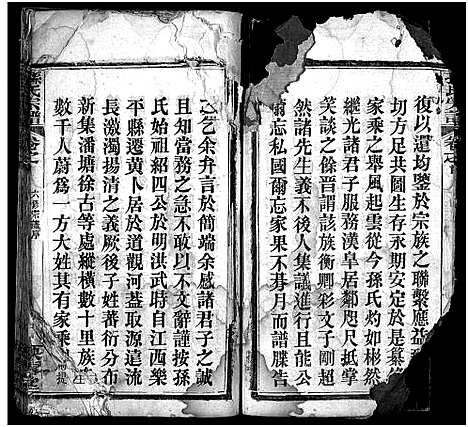 復以還均鑒於宗族之聯繫應益
切方足共圖生存永期安定於是纂
家乘之舉風起雲從今孫氏灼如彬然
繼光諸君子服務漢皋居鄰咫尺抵掌
笑談之餘晉謂該族衡卿彩文子剛超
然諸先生義不後人集議進行且能公
爾忘私國爾忘家不朞月而譜牒告
之乞余弁言於簡端余感諸君子之誠
且知當務之急不敢以不文辭謹按孫
氏始祖紹四公於明洪武時自江西樂
平縣遷黃卜居於道觀河蓋取源遠流
長激濁揚清之義厥後子姓蕃衍分布
新集潘塘徐古等處縱橫數十里族
數千人蔚爲一方大姓其有家乘
孫氏宗譜
卷之
六修宗譜序